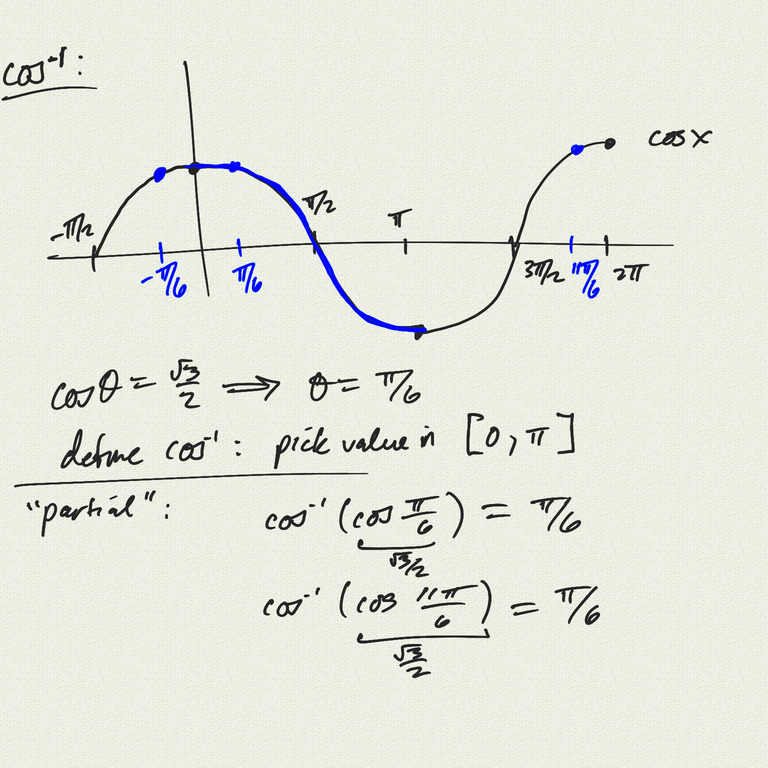 cos⁻¹:
cos x
-π/2
π/2
π
-π/6
π/6
3π/2
11π/6
2π
cos θ = √3/2 ⟹ θ = π/6
define cos⁻¹: pick value in [0, π]
"partial": cos⁻¹(cos π/6) = π/6
√3/2
cos⁻¹(cos 11π/6) = π/6
√3/2